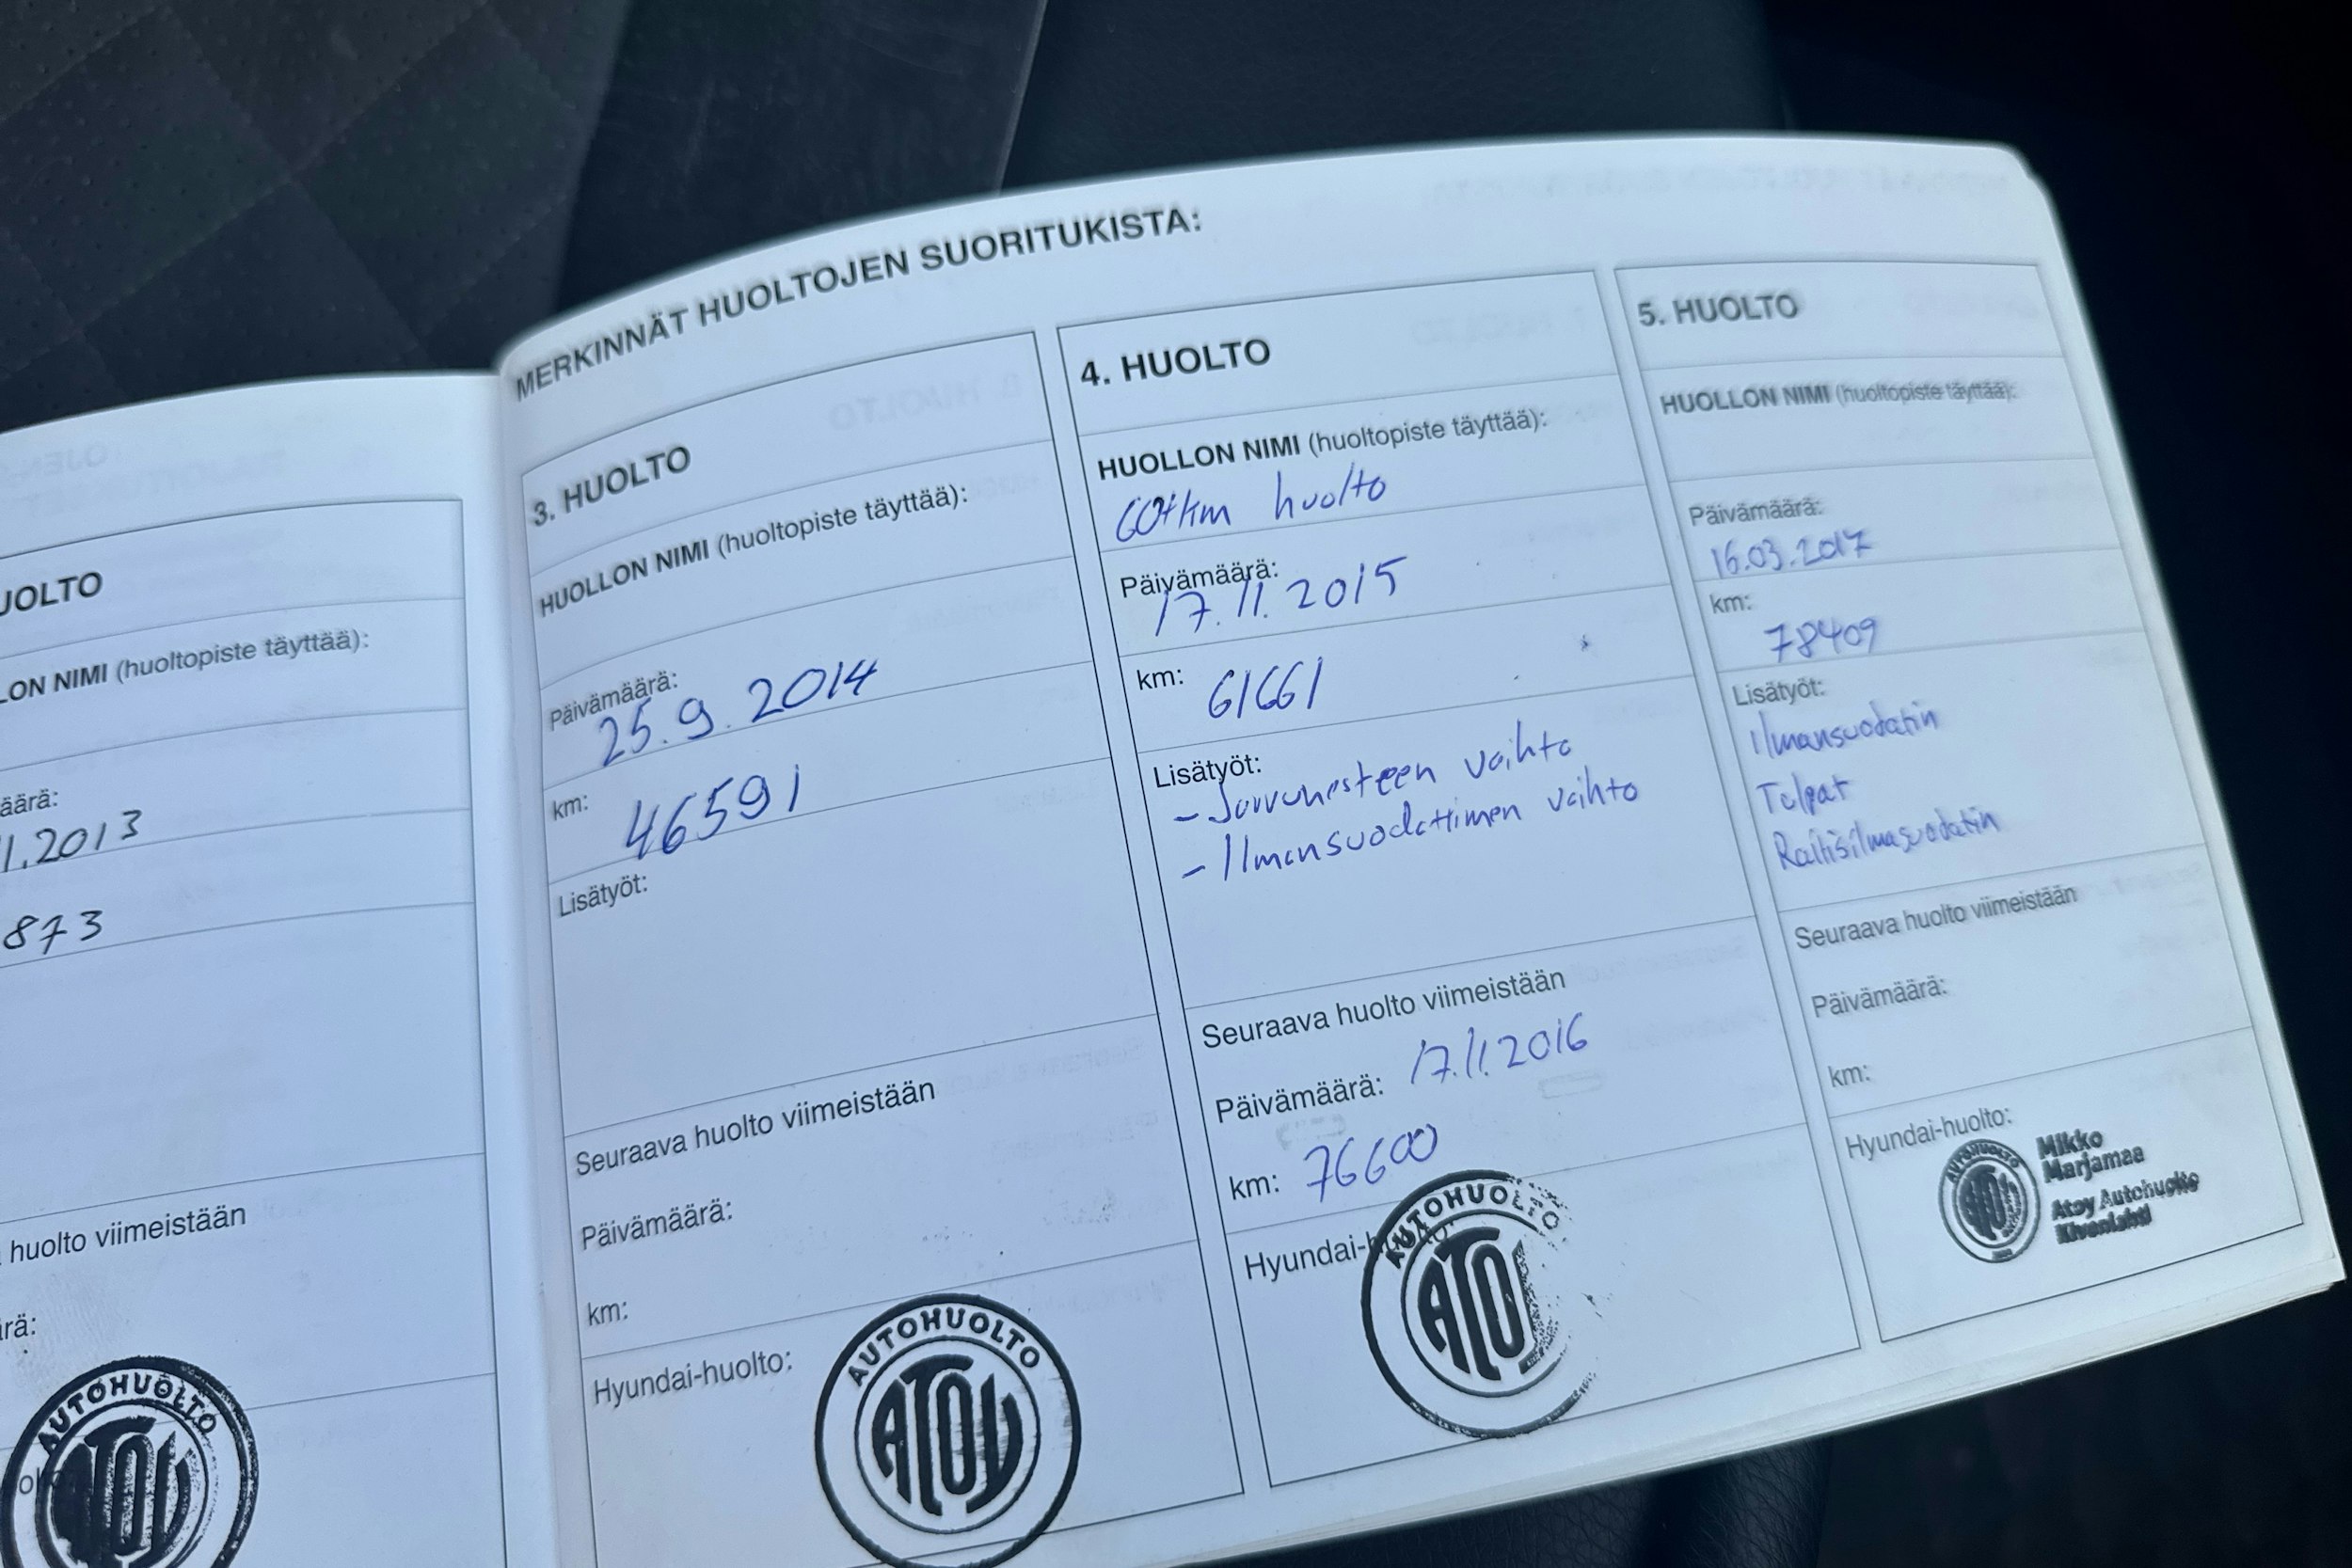 UOLTO
LON NIMI (huoltopiste täyttää):
äärä:
1.2013
873
huolto viimeistään
ärä:
AUTOHUOLTO
ATOY
MERKINNÄT HUOLTOJEN SUORITUKISTA:
3. HUOLTO
HUOLLON NIMI (huoltopiste täyttää):
Päivämäärä:
25.9.2014
km:
46591
Lisätyöt:
Seuraava huolto viimeistään
Päivämäärä:
km:
Hyundai-huolto:
AUTOHUOLTO
ATOY
4. HUOLTO
HUOLLON NIMI (huoltopiste täyttää):
60tkm huolto
Päivämäärä:
17.11.2015
km:
61661
Lisätyöt:
- Jarrunesteen vaihto
- Ilmansuodattimen vaihto
Seuraava huolto viimeistään
Päivämäärä: 17.11.2016
km: 76600
Hyundai-huolto:
AUTOHUOLTO
ATOY
5. HUOLTO
HUOLLON NIMI (huoltopiste täyttää):
Päivämäärä:
16.03.2017
km:
78409
Lisätyöt:
Ilmansuodatin
Tulpat
Raitisilmasuodatin
Seuraava huolto viimeistään
Päivämäärä:
km:
Hyundai-huolto:
AUTOHUOLTO
ATOY
Mikko
Marjamaa
Atoy Autohuolto
Kivenlahti